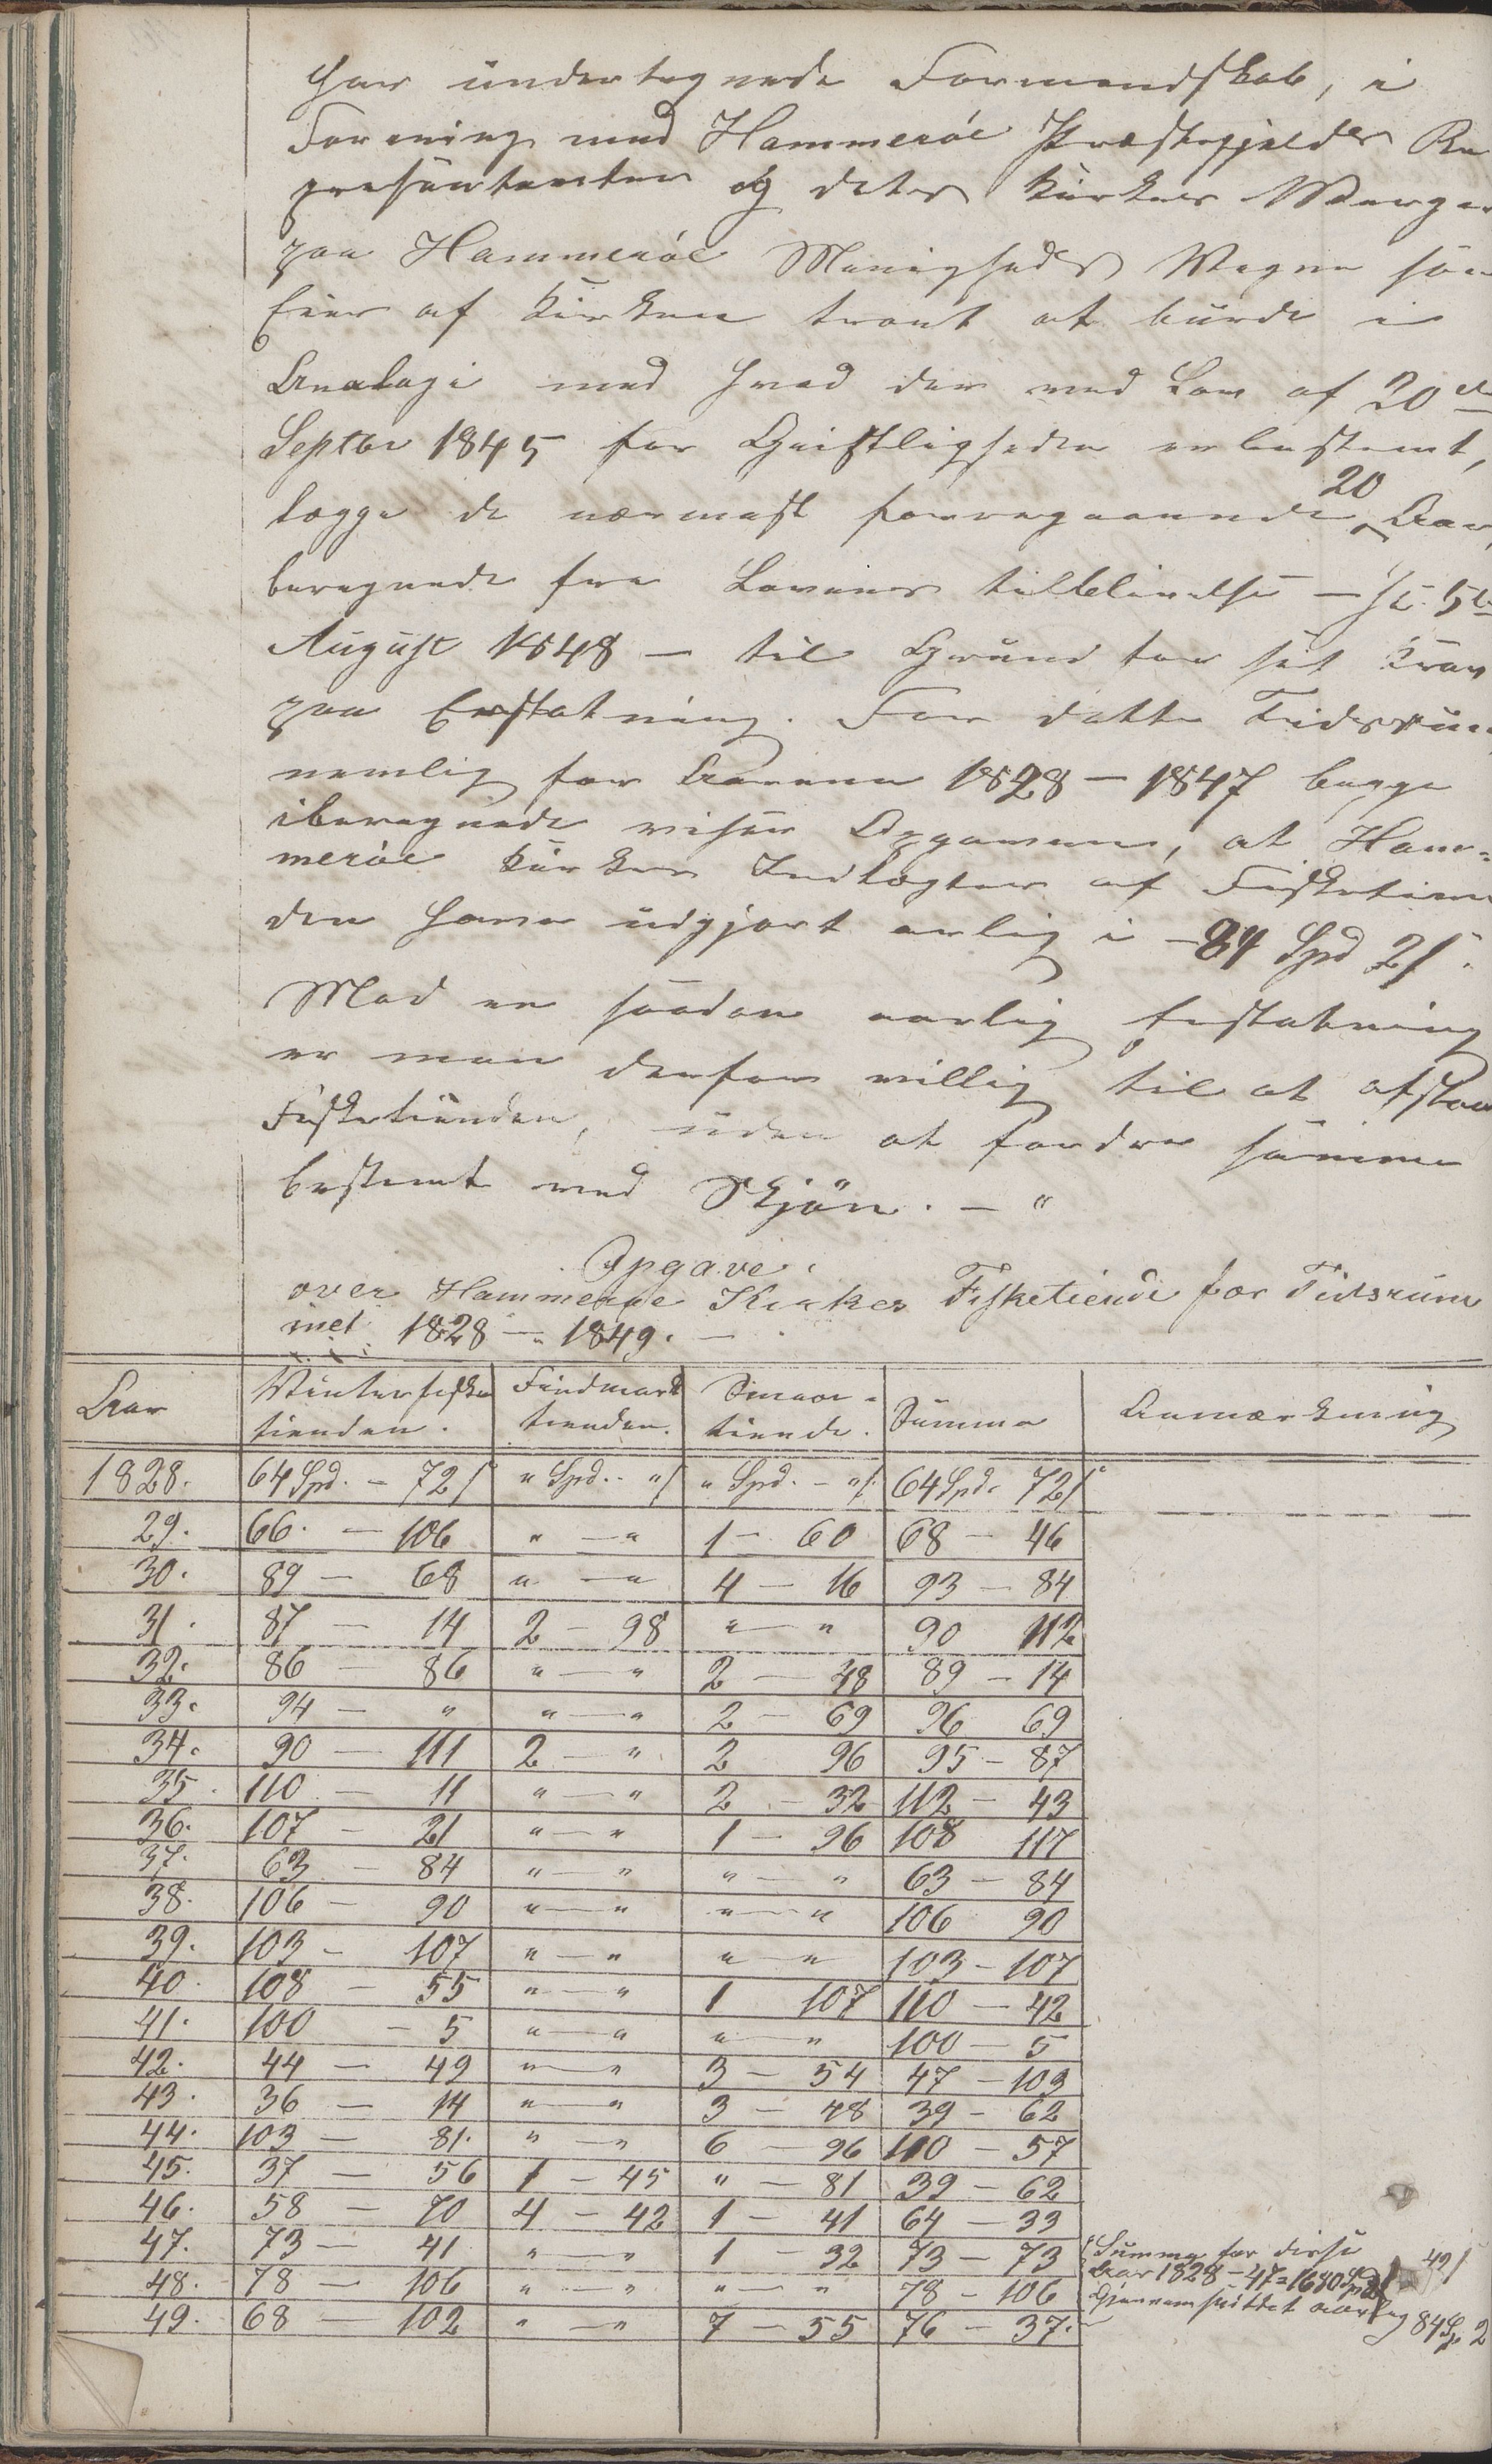 har undertegnede Formandskab, i
Forening med Hammerøe Præstegjelds Re
presentanter og dets Kirkes Værger
paa Hammerøe Menigheds Vegne som
Eier af Kirken troet at burde i
Analogi med hvad der ved Lov af 20de
Septbr 1845 for Geistligheden er bestemt,
lægge de nærmest foregaaende 20 Aar,
beregnede fra Lovens tilblivelse – 5te
August 1848 – til Grund for sit Krav
paa Erstatning. For dette Tidsrum
nemlig for Aarene 1828 – 1847 begge
iberegnede viser Opgaven, at Ham=
merøe Kirkes Indtægter af Fisketien
den have udgjort aarlig i – 84 Spd 2 s.
Mod en saadan aarlig Erstatning
er man derfor villig til at afstaa
Fisketienden, uden at fordre samme
bestemt ved Skjøn. – "
Opgave.
over Hammerøe Kirkes Fisketiende for Tidsrum
met 1828 – 1849. –
Aar | Vinterfiske tienden. | Findmark tienden. | Smaae- tiende. | Summa | Anmærkning
1828. | 64 Spd. – 72 s | " Spd. – " s | " Spd. – " s. | 64 Spd. 72 s
29. | 66. – 106 | " – " | 1 – 60 | 68 – 46
30. | 89 – 68 | " – " | 4 – 16 | 93 – 84
31. | 87 – 14 | 2 – 98 | " – " | 90 112
32. | 86 – 86 | " – " | 2 – 48 | 89 – 14
33. | 94 – " | " – " | 2 – 69 | 96 69
34. | 90 – 111 | 2 – " | 2 96 | 95 – 87
35. | 110 – 11 | " – " | 2 – 32 | 112 – 43
36. | 107 – 21 | " – " | 1 – 96 | 108 117
37. | 63 – 84 | " – " | " – " | 63 – 84
38. | 106 – 90 | " – " | " – " | 106 90
39. | 103 – 107 | " – " | " – " | 103 – 107
40. | 108 – 55 | " – " | 1 107 | 110 – 42
41. | 100 – 5 | " – " | " – " | 100 – 5
42. | 44 – 49 | " – " | 3 – 54 | 47 – 103
43. | 36 – 14 | " – " | 3 – 48 | 39 – 62
44. | 103 – 81. | " – " | 6 – 96 | 110 – 57
45. | 37 – 56 | 1 – 45 | " – 81 | 39 – 62
46. | 58 – 70 | 4 – 42 | 1 – 41 | 64 – 33
47. | 73 – 41 | " – " | 1 – 32 | 73 – 73 | Summa for disse
48. | 78 – 106 | " – " | " – " | 78 – 106 | Aar 1828 – 47 = 1680 Spd 42 s
49. | 68 – 102 | " – " | 7 – 55 | 76 – 37. | Gjennemsnittet aarlig 84 Sp. 2